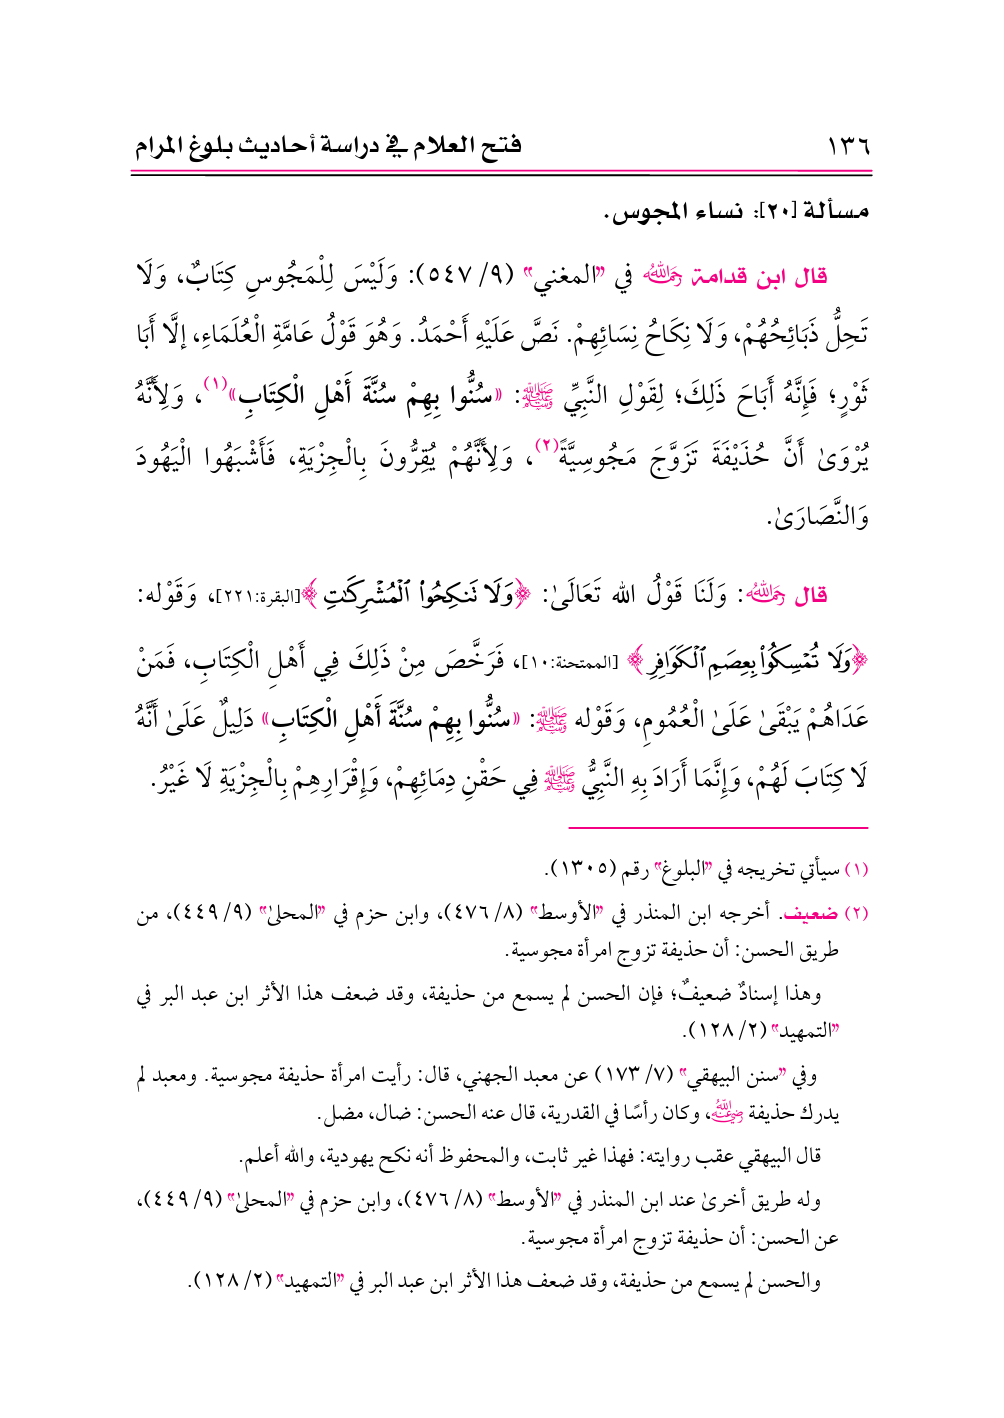 ١٣٦ فتح العلام في دراسة أحاديث بلوغ المرام
مسألة [٢٠]: نساء المجوس.
قال ابن قدامة رحمه الله في "المغني" (٩/ ٥٤٧): وَلَيْسَ لِلْمَجُوسِ كِتَابٌ، وَلَا
تَحِلُّ ذَبَائِحُهُمْ، وَلَا نِكَاحُ نِسَائِهِمْ. نَصَّ عَلَيْهِ أَحْمَدُ. وَهُوَ قَوْلُ عَامَّةِ الْعُلَمَاءِ، إلَّا أَبَا
ثَوْرٍ؛ فَإِنَّهُ أَبَاحَ ذَلِكَ؛ لِقَوْلِ النَّبِيِّ ﷺ: «سُنُّوا بِهِمْ سُنَّةَ أَهْلِ الْكِتَابِ»(١)، وَلِأَنَّهُ
يُرْوَىٰ أَنَّ حُذَيْفَةَ تَزَوَّجَ مَجُوسِيَّةً(٢)، وَلِأَنَّهُمْ يُقِرُّونَ بِالْجِزْيَةِ، فَأَشْبَهُوا الْيَهُودَ
وَالنَّصَارَىٰ.
قال رحمه الله: وَلَنَا قَوْلُ الله تَعَالَىٰ: ﴿وَلَا تَنكِحُوا۟ ٱلْمُشْرِكَٰتِ﴾[البقرة:٢٢١]، وَقَوْله:
﴿وَلَا تُمْسِكُوا۟ بِعِصَمِ ٱلْكَوَافِرِ﴾ [الممتحنة:١٠]، فَرَخَّصَ مِنْ ذَلِكَ فِي أَهْلِ الْكِتَابِ، فَمَنْ
عَدَاهُمْ يَبْقَىٰ عَلَىٰ الْعُمُومِ، وَقَوْله ﷺ: «سُنُّوا بِهِمْ سُنَّةَ أَهْلِ الْكِتَابِ» دَلِيلٌ عَلَىٰ أَنَّهُ
لَا كِتَابَ لَهُمْ، وَإِنَّمَا أَرَادَ بِهِ النَّبِيُّ ﷺ فِي حَقْنِ دِمَائِهِمْ، وَإِقْرَارِهِمْ بِالْجِزْيَةِ لَا غَيْرُ.
(١) سيأتي تخريجه في "البلوغ" رقم (١٣٠٥).
(٢) ضعيف. أخرجه ابن المنذر في "الأوسط" (٨/ ٤٧٦)، وابن حزم في "المحلىٰ" (٩/ ٤٤٩)، من
طريق الحسن: أن حذيفة تزوج امرأة مجوسية.
وهذا إسنادٌ ضعيفٌ؛ فإن الحسن لم يسمع من حذيفة، وقد ضعف هذا الأثر ابن عبد البر في
"التمهيد" (٢/ ١٢٨).
وفي "سنن البيهقي" (٧/ ١٧٣) عن معبد الجهني، قال: رأيت امرأة حذيفة مجوسية. ومعبد لم
يدرك حذيفة رضي الله عنه، وكان رأسًا في القدرية، قال عنه الحسن: ضال، مضل.
قال البيهقي عقب روايته: فهذا غير ثابت، والمحفوظ أنه نكح يهودية، والله أعلم.
وله طريق أخرىٰ عند ابن المنذر في "الأوسط" (٨/ ٤٧٦)، وابن حزم في "المحلىٰ" (٩/ ٤٤٩)،
عن الحسن: أن حذيفة تزوج امرأة مجوسية.
والحسن لم يسمع من حذيفة، وقد ضعف هذا الأثر ابن عبد البر في "التمهيد" (٢/ ١٢٨).